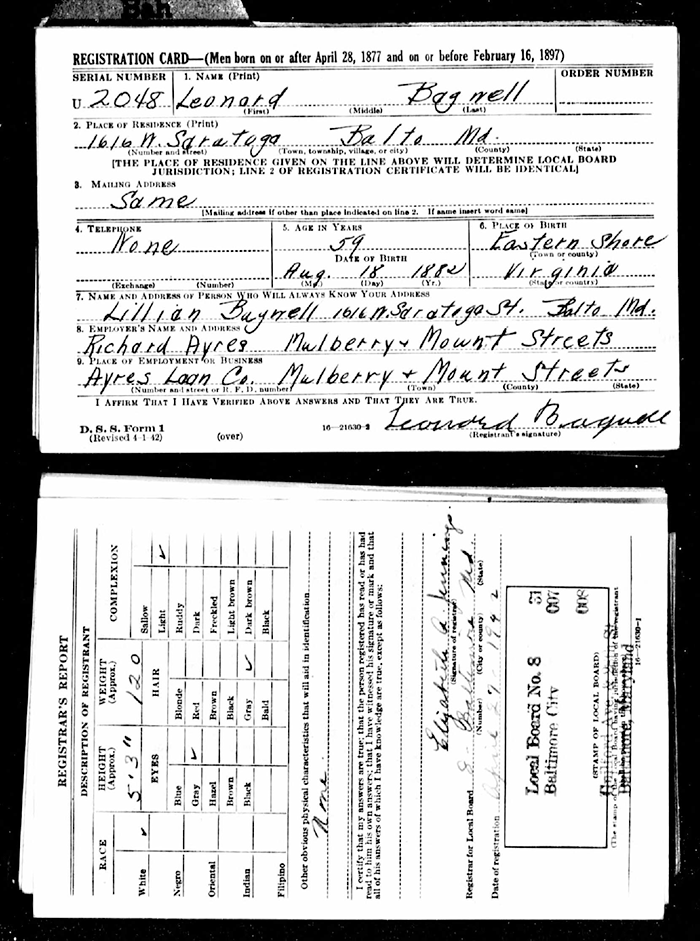 REGISTRATION CARD—(Men born on or after April 28, 1877 and on or before February 16, 1897)
SERIAL NUMBER 1. NAME (Print) ORDER NUMBER
U 2048 Leonard Bagwell
(First) (Middle) (Last)
2. PLACE OF RESIDENCE (Print)
1616 W. Saratoga Balto Md.
(Number and street) (Town, township, village, or city) (County) (State)
[THE PLACE OF RESIDENCE GIVEN ON THE LINE ABOVE WILL DETERMINE LOCAL BOARD
JURISDICTION; LINE 2 OF REGISTRATION CERTIFICATE WILL BE IDENTICAL]
3. MAILING ADDRESS
Same
[Mailing address if other than place indicated on line 2. If same insert word same]
4. TELEPHONE 5. AGE IN YEARS 6. PLACE OF BIRTH
None 59 Eastern Shore
DATE OF BIRTH (Town or county)
Aug. 18 1882 Virginia
(Exchange) (Number) (Mo.) (Day) (Yr.) (State or country)
7. NAME AND ADDRESS OF PERSON WHO WILL ALWAYS KNOW YOUR ADDRESS
Lillian Bagwell 1616 W. Saratoga St. Balto Md.
8. EMPLOYER'S NAME AND ADDRESS
Richard Ayres Mulberry + Mount Streets
9. PLACE OF EMPLOYMENT OR BUSINESS
Ayres Loan Co. Mulberry + Mount Streets
(Number and street or R. F. D. number) (Town) (County) (State)
I AFFIRM THAT I HAVE VERIFIED ABOVE ANSWERS AND THAT THEY ARE TRUE.
Leonard Bagwell
D. S. S. Form 1
(Revised 4-1-42) (over) 16—21630-2 (Registrant's signature)
REGISTRAR'S REPORT
DESCRIPTION OF REGISTRANT
RACE HEIGHT (Approx.) WEIGHT (Approx.) COMPLEXION
White ✓ 5'3" 120 Sallow
EYES HAIR Light ✓
Negro Blue Blonde Ruddy
Gray ✓ Red Dark
Oriental Hazel Brown Freckled
Brown Black Light brown
Indian Black Gray ✓ Dark brown
Bald Black
Filipino
Other obvious physical characteristics that will aid in identification
None
I certify that my answers are true; that the person registered has read or has had
read to him his own answers; that I have witnessed his signature or mark and that
all of his answers of which I have knowledge are true, except as follows:
Elizabeth A. Jennings
(Signature of registrar)
Registrar for Local Board 8 Baltimore Md.
(Number) (City or county) (State)
Date of registration April 27 1942
Local Board No. 8 31
Baltimore City 007
008
(STAMP OF LOCAL BOARD)
Baltimore, Maryland
16—21630-1